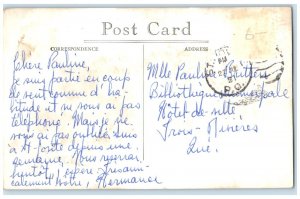 Post Card
CORRESPONDENCE
ADDRESS
Chère Pauline,
Je suis partie en coup
de vent comme d'ha-
bitude et ne vous ai pas
téléphoné. Mais je ne
vous ai pas oubliée. Suis
à depuis une
semaine. Vous reverrai
bientôt j'espère.
Vôtre, Hermance
Mlle Pauline
Bibliothèque
Hôtel de ville
Trois-Rivières
Que.
P.Q.
6-